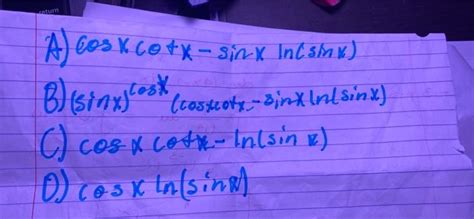 A) cosx cotx - sinx ln(sinx)
B) (sinx)^cosx (cosxcotx - sinx ln(sinx)
C) cosx cotx - ln(sin x)
D) cosx ln(sinx)